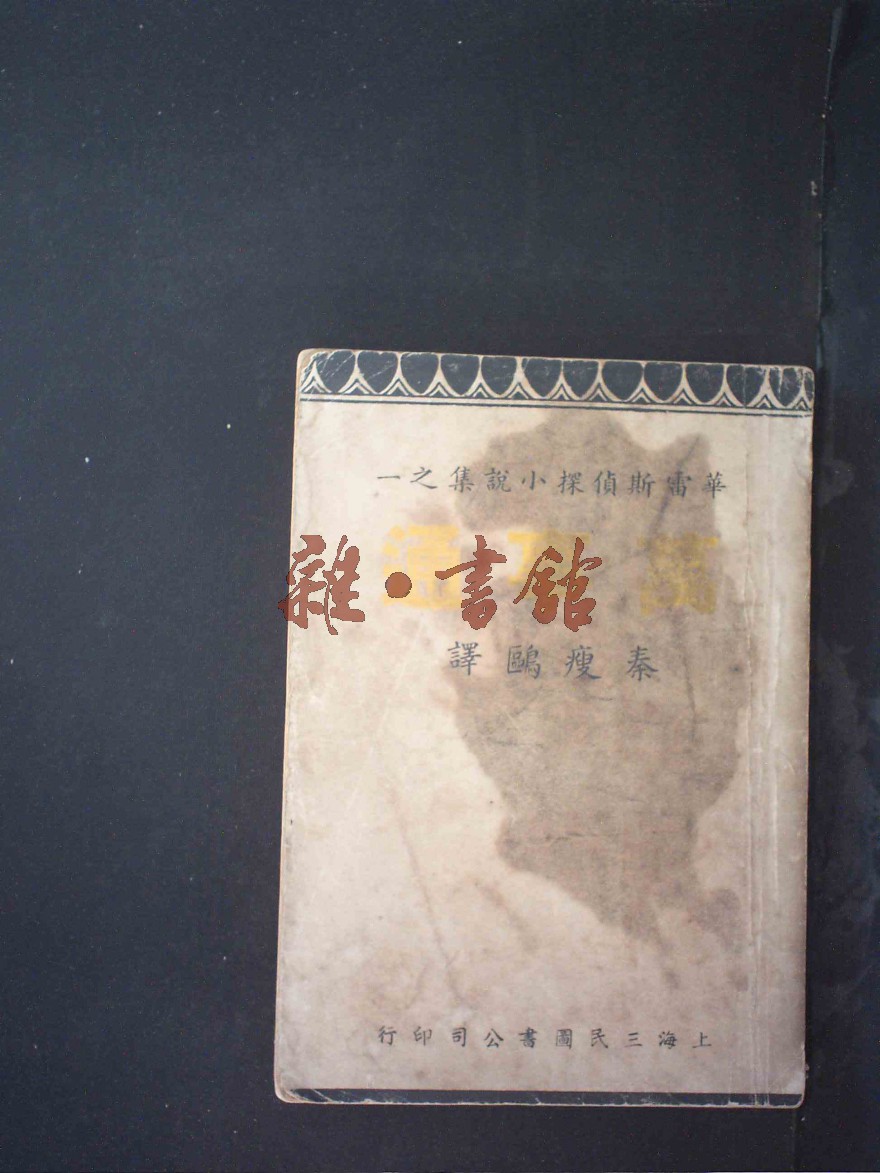 華雷斯偵探小說集之一
萬事通
雜·書館
秦瘦鷗譯
上海三民圖書公司印行